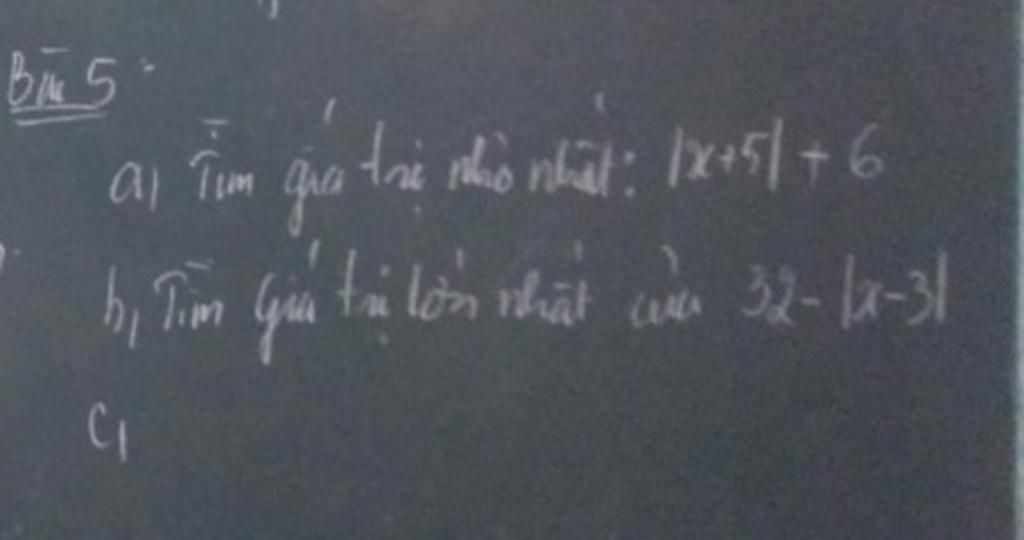 Bài 5:
a, Tìm giá trị nhỏ nhất: |x+5| + 6
b, Tìm giá trị lớn nhất của 32 - |x-3|
c,